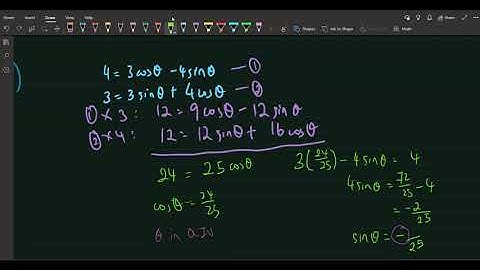 4 = 3cosθ - 4sinθ — ①
3 = 3sinθ + 4cosθ — ②
① × 3 : 12 = 9cosθ - 12sinθ
② × 4 : 12 = 12sinθ + 16cosθ
24 = 25cosθ
cosθ = 24/25
θ in Q.IV
3(24/25) - 4sinθ = 4
4sinθ = 72/25 - 4
= -2/25
sinθ = - /25